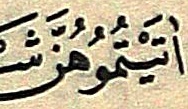 اٰتَيْتُمُوهُنَّ